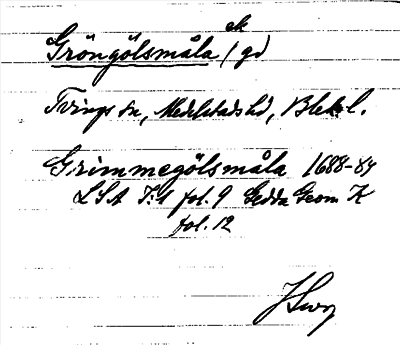 ek
Gröngölsmåla / gd
Tvings sn, Medelstads hd, Blek. l.
Grimmegölsmåla 1688-89
LSA I:1 fol. 9 Gedda Geom K
fol. 12